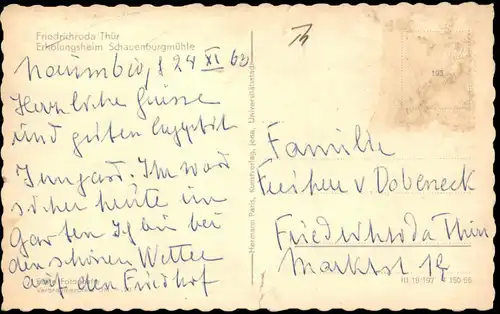 Friedrichroda Thür
Erholungsheim Schauenburgmühle
24 XI 60
Herzliche Grüsse
und guten Appetit
Irmgard. Ihr ward
sicher heute im
Garten Ich bin bei
den schönen Wetter
auf den Friedhof
Hermann Paris, Kunstverlag, Jena, Universitätsstraße
Familie
v Dobeneck
Friedrichroda Thür
Marktst 19
III/18/197